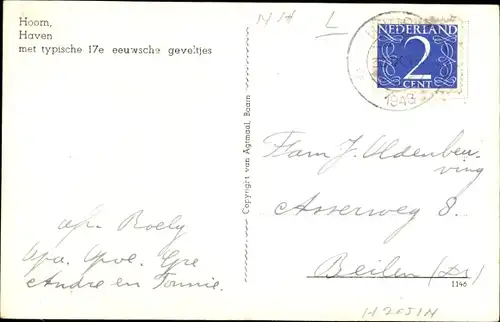 Hoorn,
Haven
met typische 17e eeuwsche geveltjes
N H L
NEDERLAND
2
CENT
1948
Copyright van Agtmaal, Baarn
Fam J. Oldenbur-
ving
Asserweg 8.
Beilen (Dr)
1146
afz. Roely
Opa. Opoe.
Andre en Tonnie.
H2051N